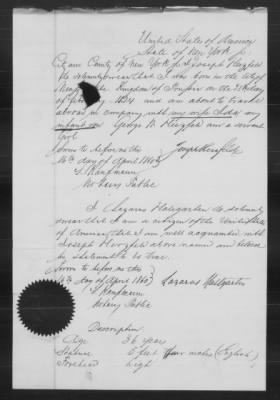 United States of America
State of New York
City and County of New York I Joseph Herzfeld
do solemnly swear that I was born in the City of
Kingdom of Prussia on the 21 day
of February 1834 and am about to travel
abroad in company with my wife Ida my
infant son George N Herzfeld and a servant
Girl
Sworn to before me this
16th day of April 1860
Joseph Herzfeld
S. Kaufmann
Notary Public
I Lazarus Hallgarten do solemnly
swear that I am a citizen of the United States
of America that I am well acquainted with
Joseph Herzfeld above named and believe
his statement to be true.
Sworn to before me this
16th day of April 186
Lazarus Hallgarten
S Kaufmann
Notary Public
Description
Age 36 years
Stature 5 feet four inches (English)
Forehead high